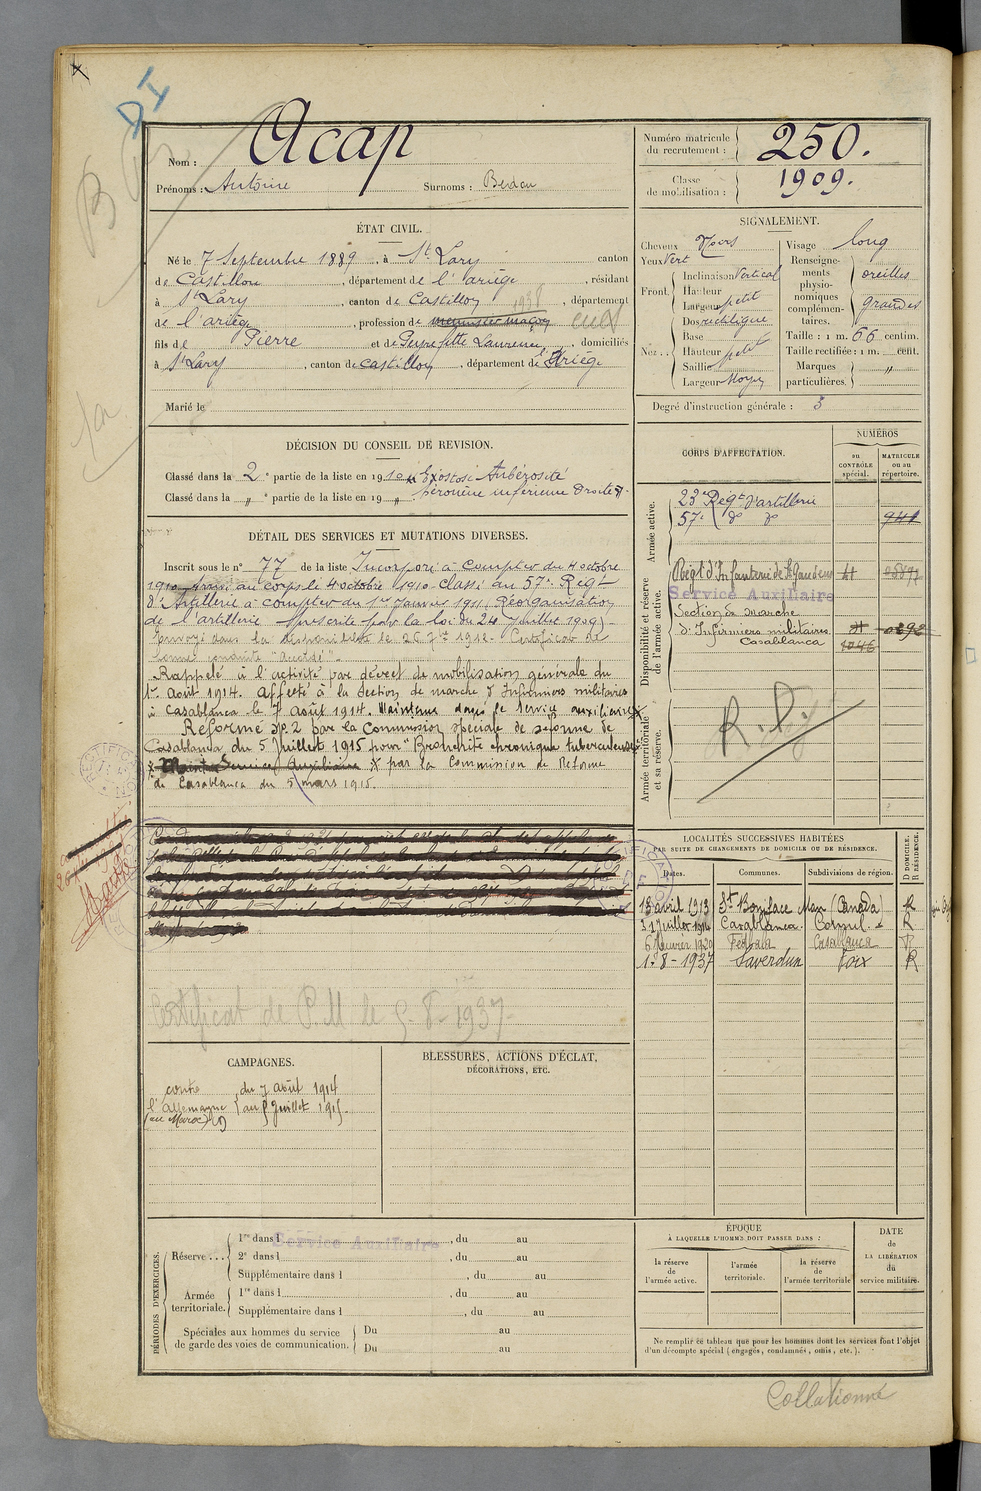 Nom : Acap
Prénoms : Antoine Surnoms :
Numéro matricule du recrutement : 250.
Classe de mobilisation : 1909.
ÉTAT CIVIL.
Né le 7 Septembre 1889, à St Lary canton
de Castillon, département de l'ariège, résidant
à St Lary, canton de Castillon, département
de l'ariège, profession de menuisier maçon 1938
fils de Pierre et de Laurence, domiciliés
à St Lary, canton de Castillon, département de l'Ariège
Marié le
SIGNALEMENT.
Cheveux Noirs
Yeux Vert
Front. Inclinaison Vertical
Hauteur
Largeur petit
Nez... Dos rectiligne
Base
Hauteur petit
Saillie
Largeur Moyen
Visage long
Renseignements physionomiques complémentaires. oreilles grandes
Taille : 1 m. 66 centim.
Taille rectifiée : 1 m. cent.
Marques particulières. "
Degré d'instruction générale : 3
DÉCISION DU CONSEIL DE REVISION.
Classé dans la 2e partie de la liste en 1910 Exostose tubérosité
Classé dans la " e partie de la liste en 19 " péronière inférieure Droite
DÉTAIL DES SERVICES ET MUTATIONS DIVERSES.
Inscrit sous le n° 77 de la liste Incorporé à compter du 4 octobre
1910. Arrivé au corps le 4 octobre 1910. Classé au 57e Régt
d'Artillerie à compter du 1er Janvier 1911 (Réorganisation
de l'artillerie prescrite par la loi du 24 Juillet 1909)
Envoyé dans la disponibilité le 26 7bre 1912. Certificat de
bonne conduite "Accordé".
Rappelé à l'activité par décret de mobilisation générale du
1er Août 1914. Affecté à la Section de marche d'Infirmiers militaires
à Casablanca le 7 Août 1914. Maintenu dans le service auxiliaire X
Réformé N° 2 par la Commission spéciale de réforme de
Casablanca du 5 Juillet 1915 pour "Bronchite chronique tuberculeuse"
Service Auxiliaire X par la Commission de Réforme
de Casablanca du 5 mars 1915.
Certificat de P.M le 5-8-1937-
CORPS D'AFFECTATION.
NUMÉROS
au CONTRÔLE spécial.
MATRICULE ou au répertoire.
Armée active.
23e Régt d'artillerie
57e do do 941
Disponibilité et réserve de l'armée active.
Régt d'Infanterie de St Gaudens
Service Auxiliaire
Section de marche
d'Infirmiers militaires
Casablanca 1046
Armée territoriale et sa réserve.
LOCALITÉS SUCCESSIVES HABITÉES
PAR SUITE DE CHANGEMENTS DE DOMICILE OU DE RÉSIDENCE.
Dates. Communes. Subdivisions de région. D DOMICILE. R RÉSIDENCE.
13 avril 1913 St Boniface Man (Canada) R
31 Juillet 1914 Casablanca. R
6 Février 1920 Fédhala Casablanca
1-8-1937 Saverdun Foix R
CAMPAGNES.
contre l'Allemagne (au Maroc) du 7 Août 1914
au 5 Juillet 1915.
BLESSURES, ACTIONS D'ÉCLAT,
DÉCORATIONS, ETC.
PÉRIODES D'EXERCICES.
Réserve... 1re dans l Service Auxiliaire, du au
2e dans l , du au
Supplémentaire dans l , du au
Armée territoriale. 1re dans l , du au
Supplémentaire dans l , du au
Spéciales aux hommes du service de garde des voies de communication. Du au
Du au
ÉPOQUE
À LAQUELLE L'HOMME DOIT PASSER DANS :
la réserve de l'armée active.
l'armée territoriale.
la réserve de l'armée territoriale
DATE de LA LIBÉRATION du service militaire.
Ne remplir ce tableau que pour les hommes dont les services font l'objet
d'un décompte spécial (engagés, condamnés, omis, etc.).
Collationné